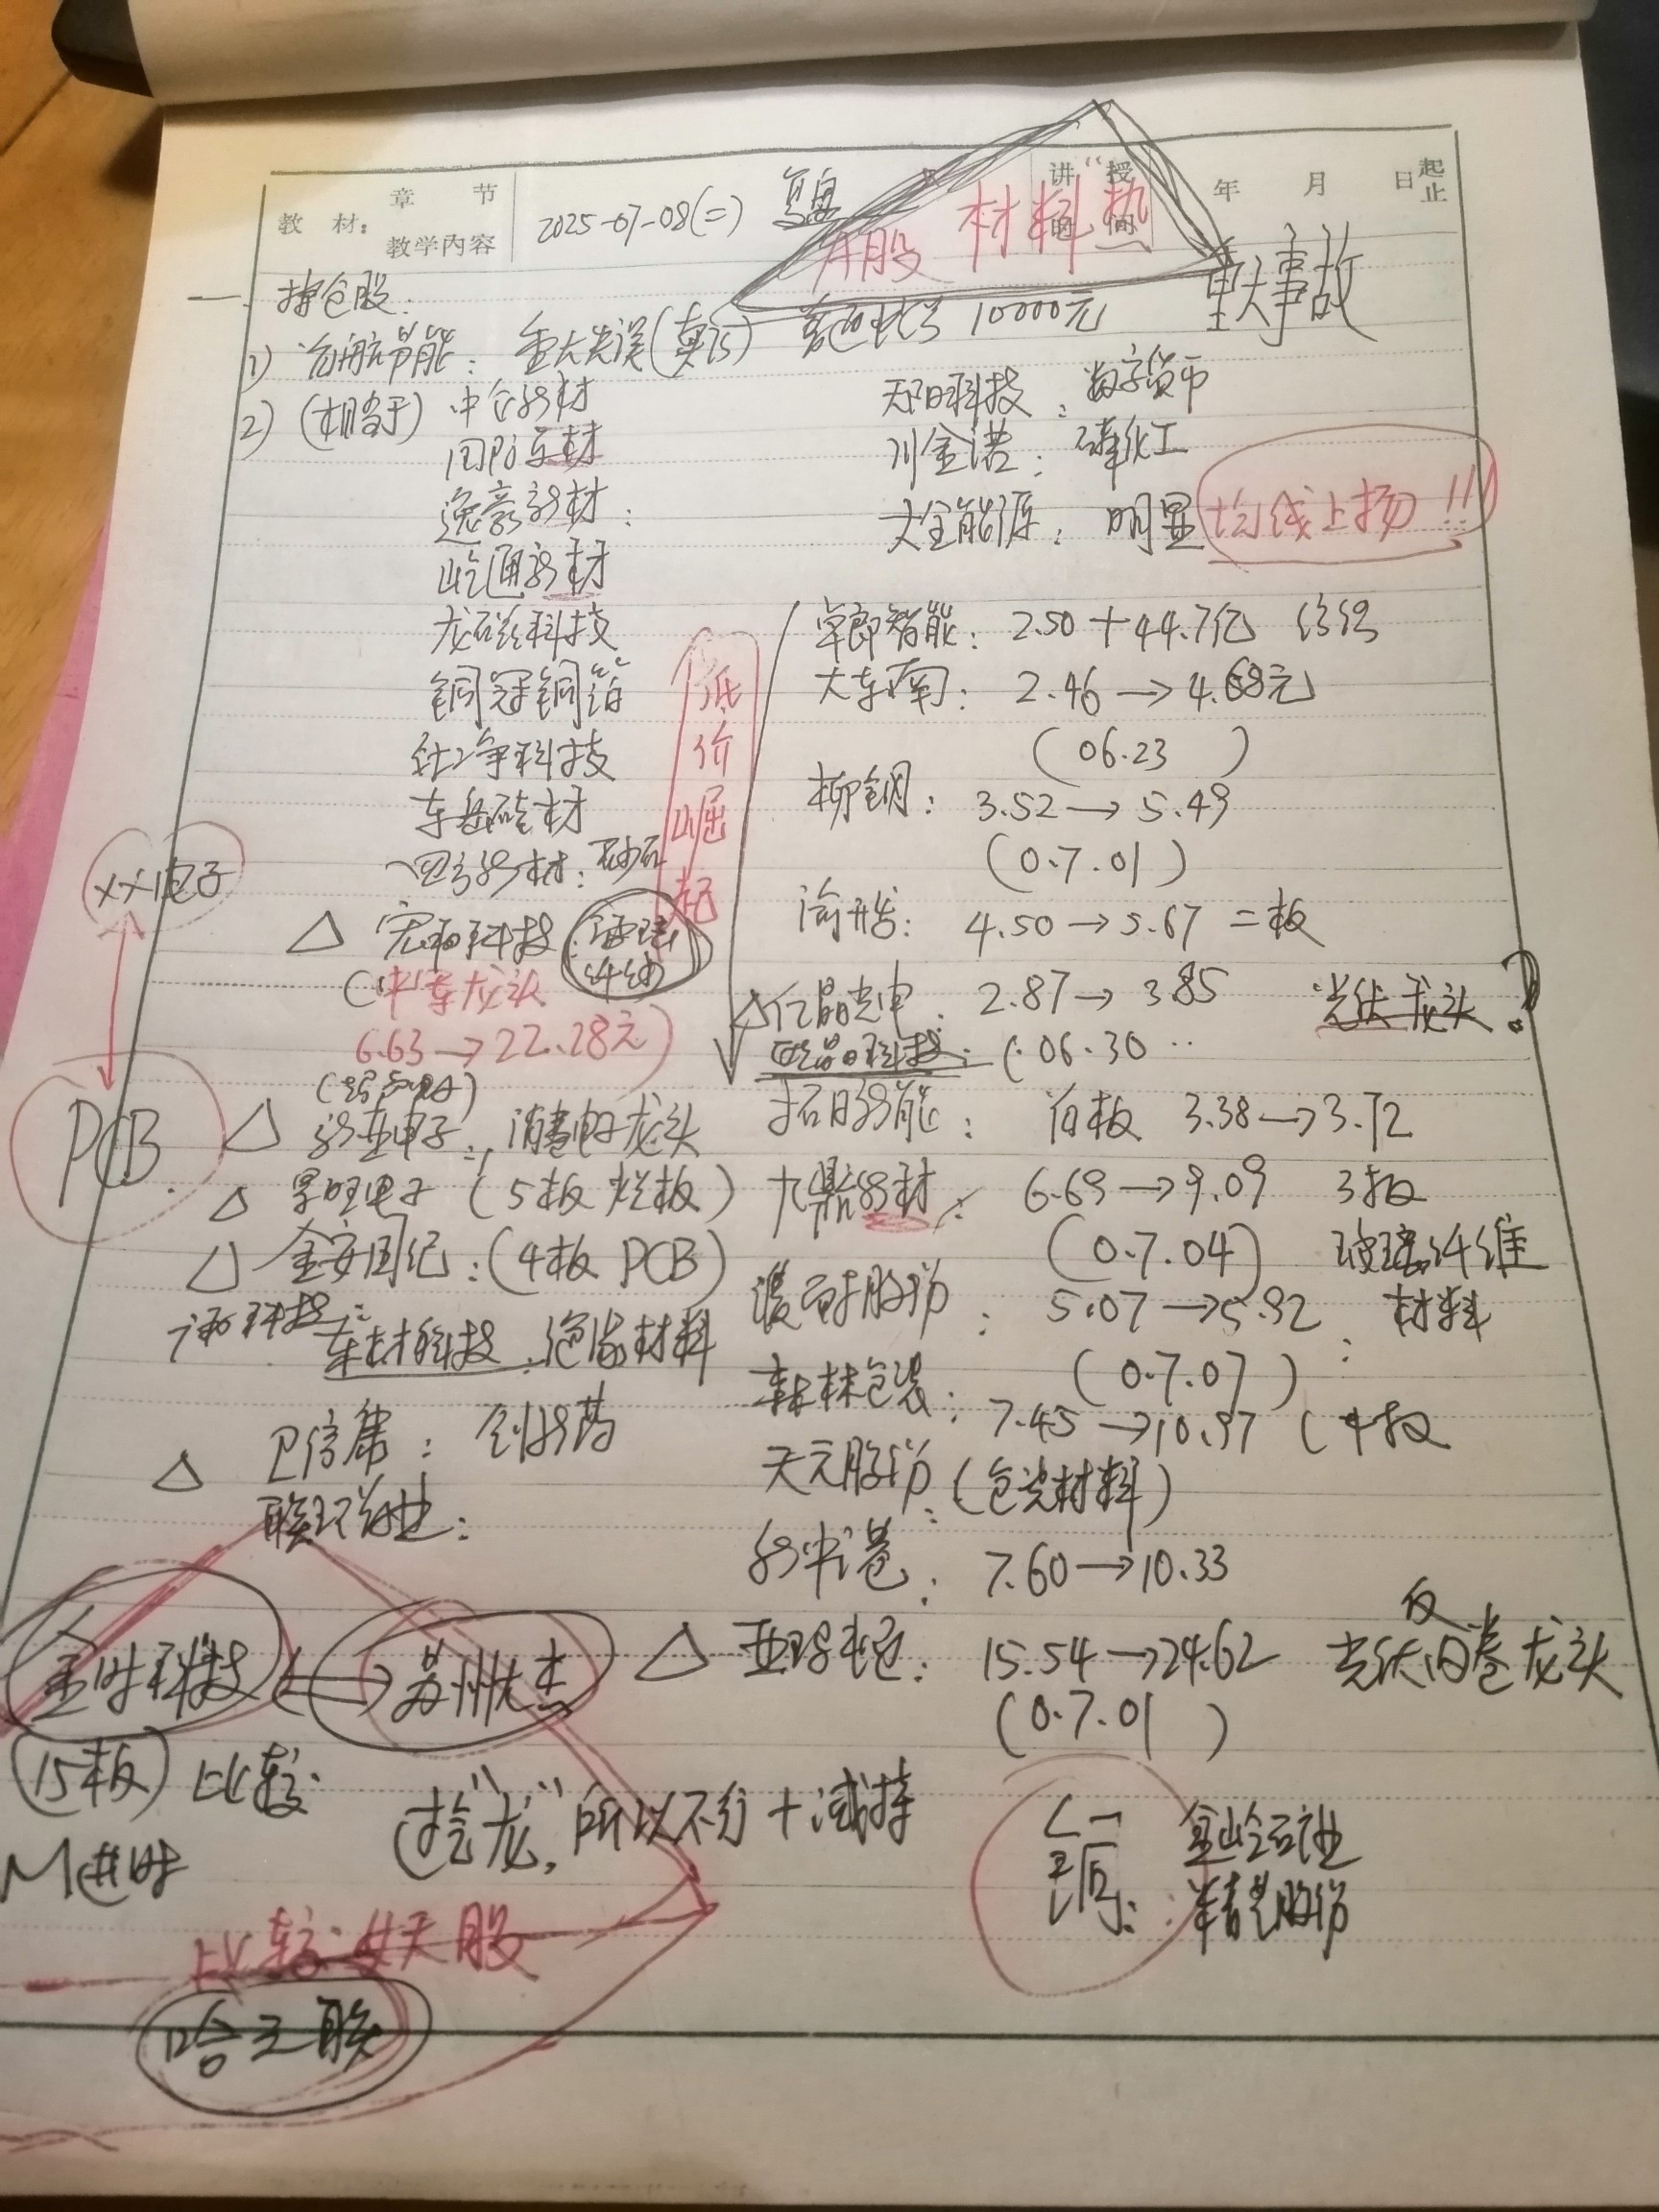 教 材：
章 节
教学内容
2025-07-08(二) 复盘
讲授
时间
年 月 日
起
止
A股 材料热
重大事故
一、持仓股：
1) 远航节能： 重大失误 10000元
2) (相当于) 中仑新材
逸豪新材：
屹通新材
龙磁科技
铜冠铜箔
科技
东岳硅材
宏和科技：玻璃纤维
(中军龙头
6.63→22.28元)
新亚电子：消费电子龙头
旺电子 (5板 烂板)
金安国纪：(4板 PCB)
东材科技：绝缘材料
卫信康：创新药
联环药业：
××电子
PCB
低价崛起
天阳科技：数字货币
川金诺：磷化工
大全能源：明显均线上扬!!!
卓郎智能：2.50+44.7亿
大东南：2.46→4.68元
(06.23)
柳钢：3.52→5.49
(0.7.01)
渝开发：4.50→5.67 二板
亿晶光电：2.87→3.85 光伏龙头?
(06.30
拓日新能：首板 3.38→3.72
九鼎新材：6.69→9.09 3板
(0.7.04) 玻璃纤维
股份：5.07→5.92：材料
(0.7.07)
森林包装：7.45→10.97 (4板
天元股份：(包装材料)
新中港：7.60→10.33
亚玛顿：15.54→24.62 光伏反内卷龙头
(0.7.01)
金时科技 ←→ 苏州龙杰
(15板) 比较
抢“龙”，所以不行+减持
比较：妖天股
哈三联
金岭矿业
精艺股份